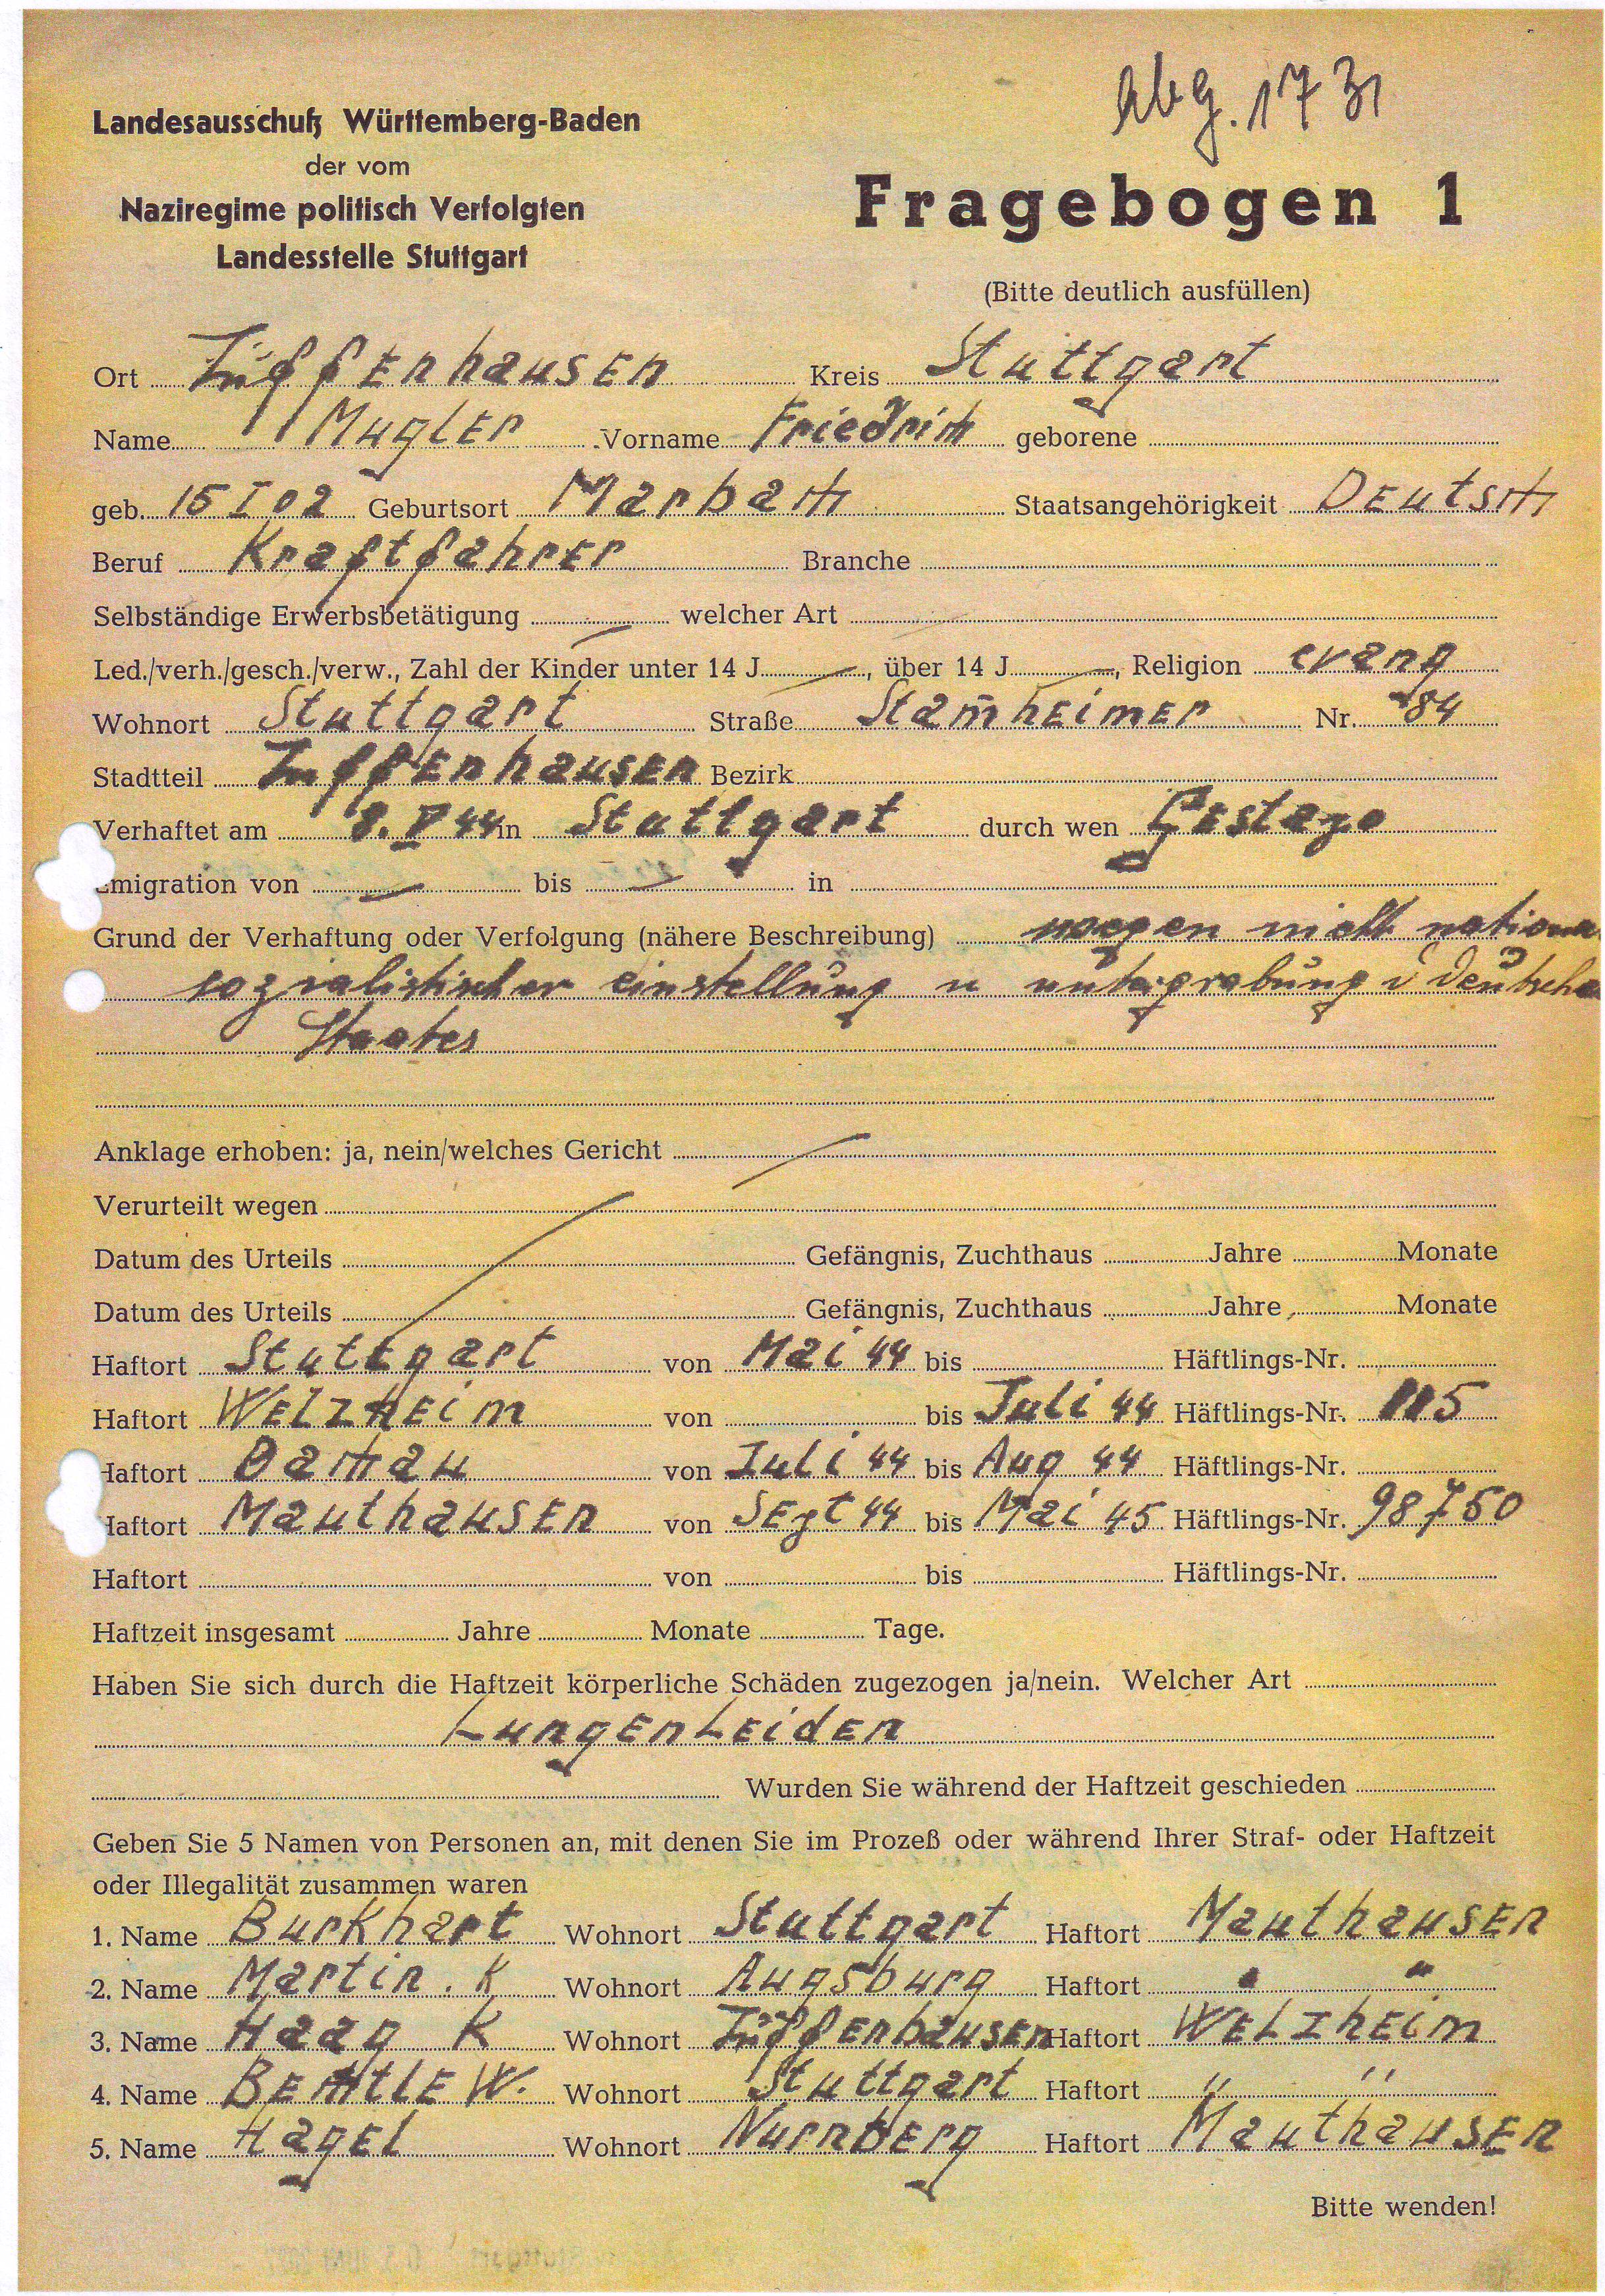 Abg. 1731
Landesausschuß Württemberg-Baden
der vom
Naziregime politisch Verfolgten
Landesstelle Stuttgart
Fragebogen 1
(Bitte deutlich ausfüllen)
Ort Zuffenhausen Kreis Stuttgart
Name Mugler Vorname Friedrich geborene
geb. 15 I 02 Geburtsort Marbach Staatsangehörigkeit Deutsch
Beruf Kraftfahrer Branche
Selbständige Erwerbsbetätigung welcher Art
Led./verh./gesch./verw., Zahl der Kinder unter 14 J. –, über 14 J. –, Religion evang
Wohnort Stuttgart Straße Stam̄heimer Nr. 84
Stadtteil Zuffenhausen Bezirk
Verhaftet am 8. V 44 in Stuttgart durch wen Gestapo
Emigration von – bis – in
Grund der Verhaftung oder Verfolgung (nähere Beschreibung) wegen nicht national
sozialistischer einstellung u untergrabung d Deutschen
Staates
Anklage erhoben: ja, nein/welches Gericht
Verurteilt wegen
Datum des Urteils Gefängnis, Zuchthaus Jahre Monate
Datum des Urteils Gefängnis, Zuchthaus Jahre Monate
Haftort Stuttgart von Mai 44 bis Häftlings-Nr.
Haftort Welzheim von bis Juli 44 Häftlings-Nr. 115
Haftort Dachau von Juli 44 bis Aug 44 Häftlings-Nr.
Haftort Mauthausen von Sept 44 bis Mai 45 Häftlings-Nr. 98750
Haftort von bis Häftlings-Nr.
Haftzeit insgesamt Jahre Monate Tage.
Haben Sie sich durch die Haftzeit körperliche Schäden zugezogen ja/nein. Welcher Art
Lungenleiden
Wurden Sie während der Haftzeit geschieden
Geben Sie 5 Namen von Personen an, mit denen Sie im Prozeß oder während Ihrer Straf- oder Haftzeit
oder Illegalität zusammen waren
1. Name Burkhart Wohnort Stuttgart Haftort Mauthausen
2. Name Martin. K Wohnort Augsburg Haftort " "
3. Name Haag K Wohnort Zuffenhausen Haftort Welzheim
4. Name Bechtle W. Wohnort Stuttgart Haftort " "
5. Name Hagel Wohnort Nurnberg Haftort Mauthausen
Bitte wenden!